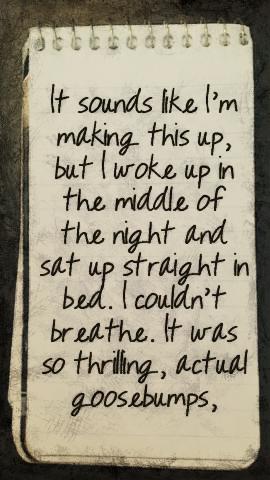 It sounds like I'm
making this up,
but I woke up in
the middle of
the night and
sat up straight in
bed. I couldn't
breathe. It was
so thrilling, actual
goosebumps,